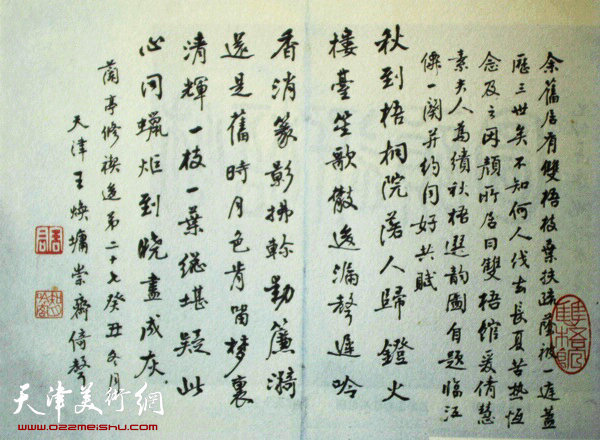 余舊居有雙梧枝葉扶疏蔭被一庭蓋
歷三世矣不知何人伐去長夏苦热恆
念及之因顏所居曰雙梧館爰倩慧
素夫人為績秋梧選韵圖自題臨江
僊一闋并约同好共賦
秋到梧桐院落人歸鐙火
樓臺笙歌散後漏聲遲吟
香消篆影掃軫動簾漪
還是舊時月色肯留夢裏
清輝一枝一葉總堪疑此
心同蠟炬到曉盡成灰
蘭亭修禊後第二十七癸丑冬月
天津王煥墉崇齋倚聲
天津美術網
www.022meishu.com